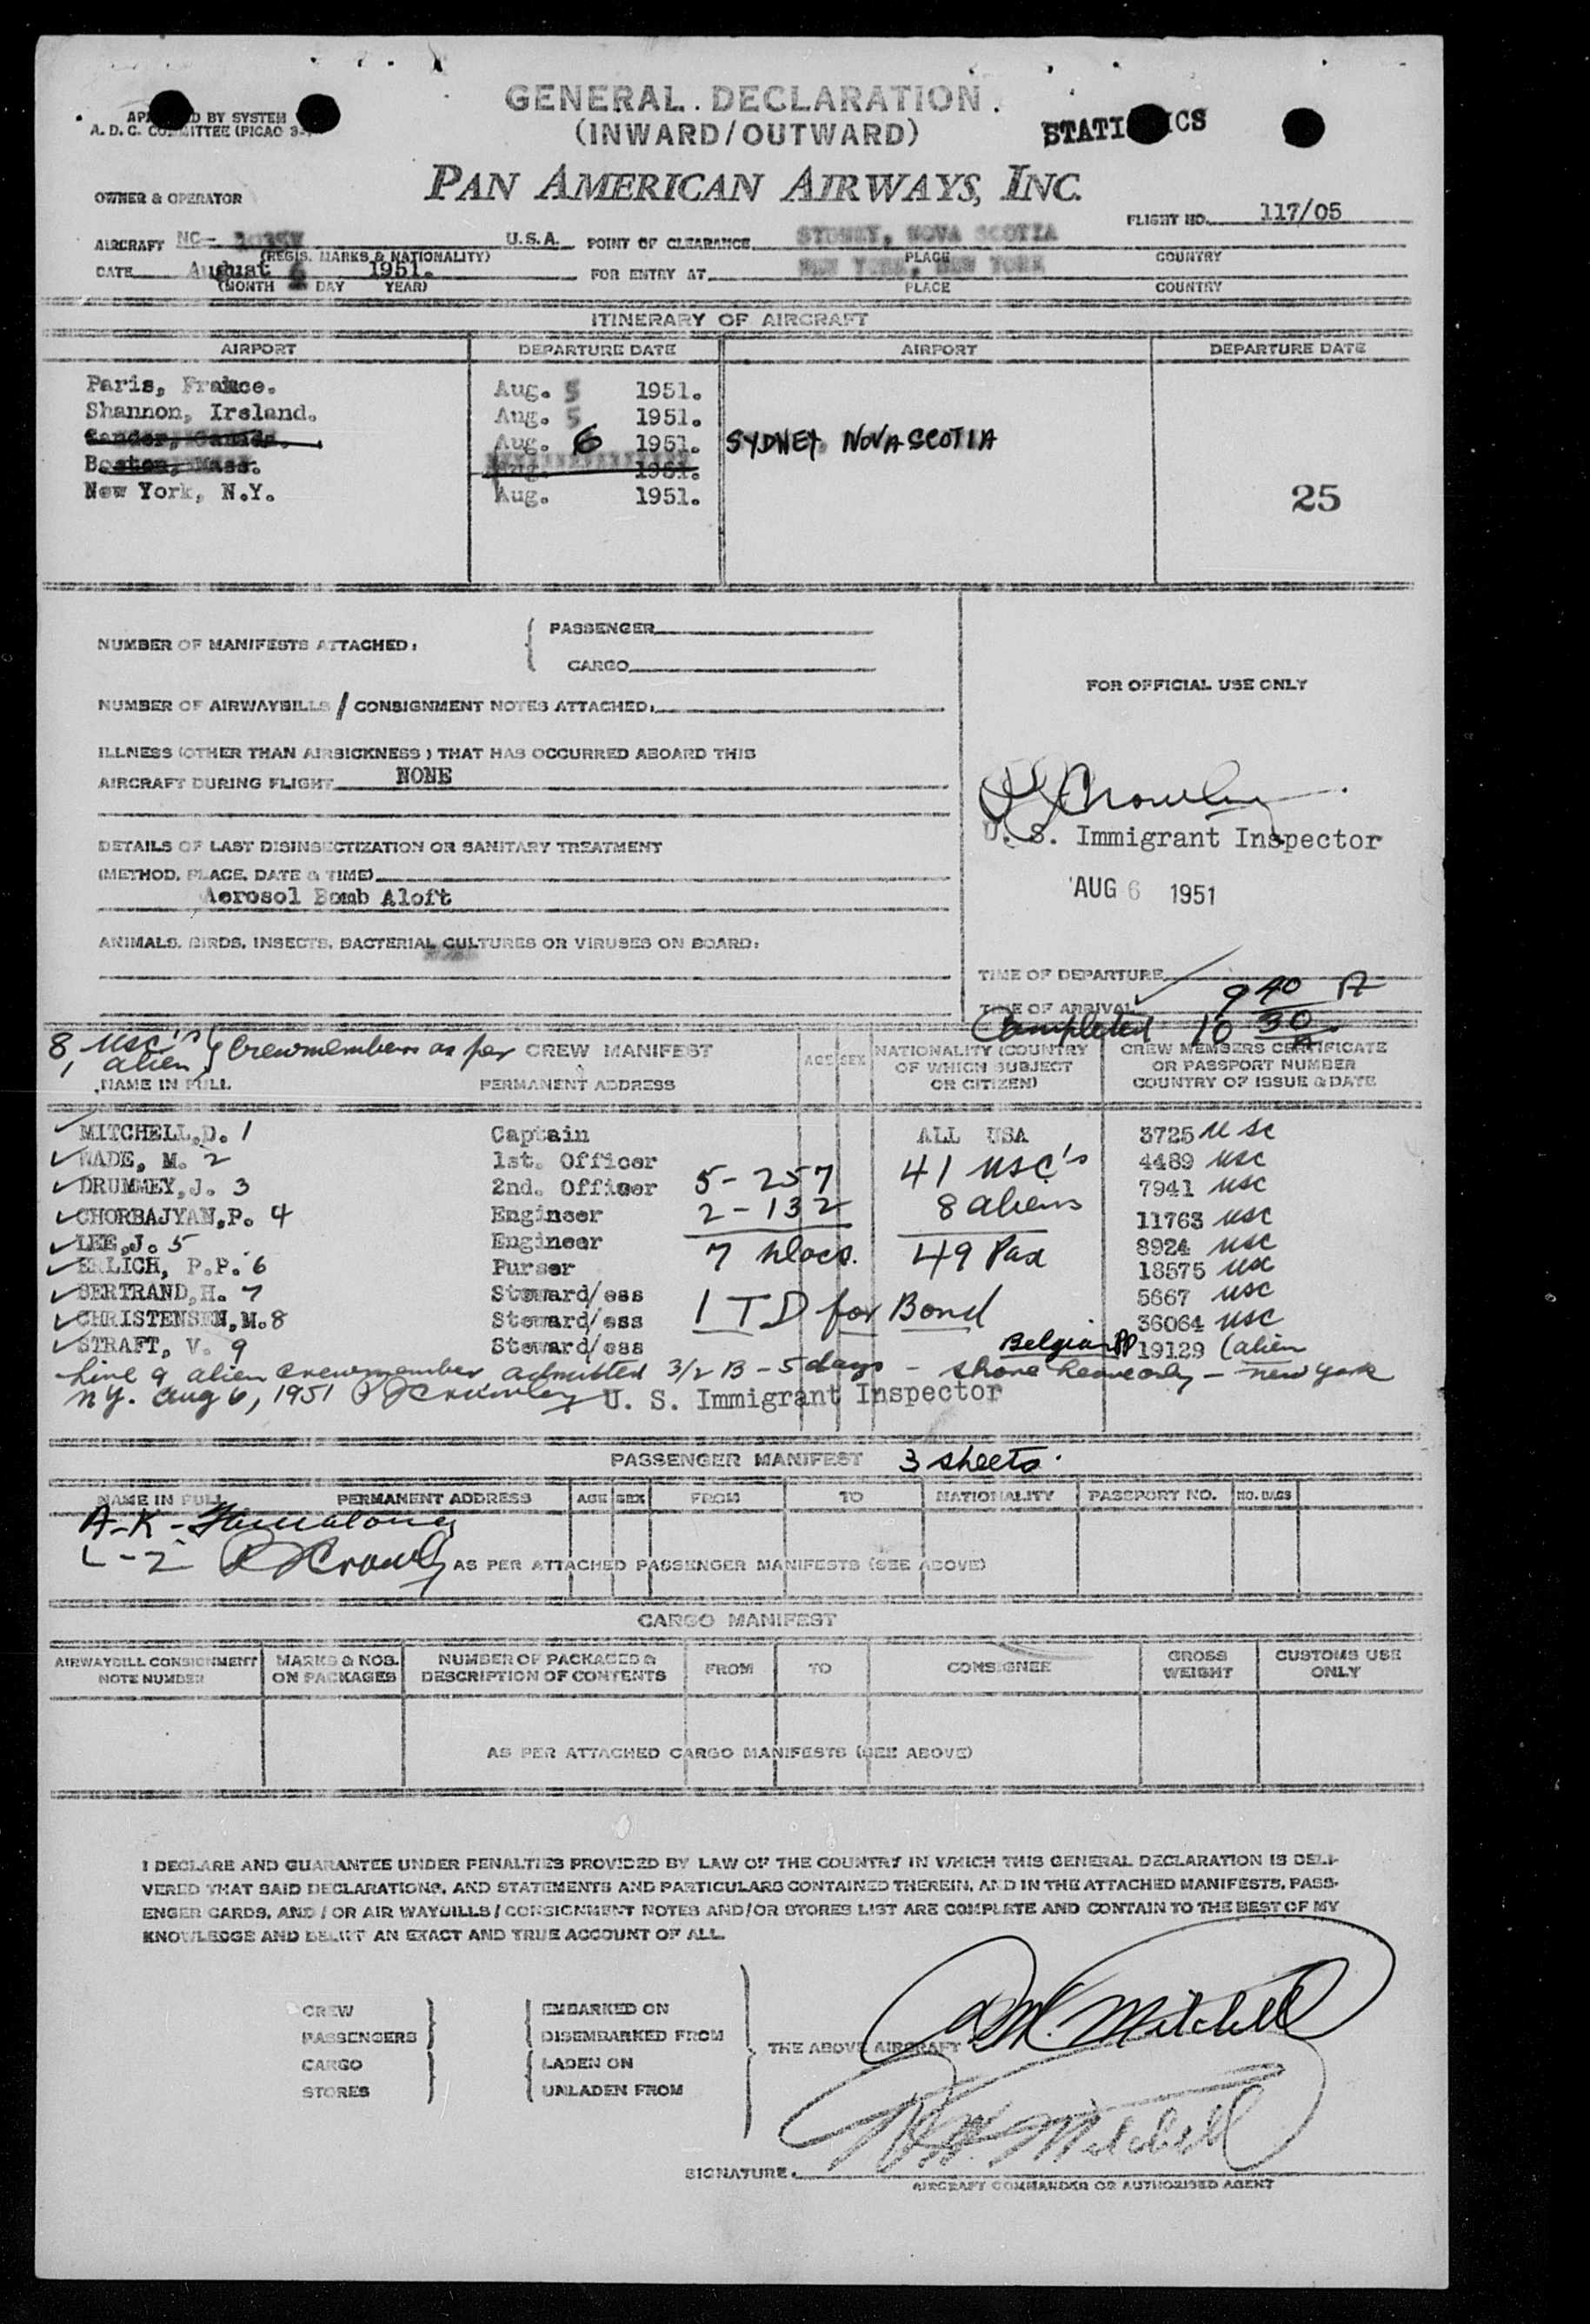 GENERAL DECLARATION
(INWARD/OUTWARD)
D BY SYSTEM
A. D. C. COMMITTEE (PICAO
STATISTICS
PAN AMERICAN AIRWAYS, INC.
OWNER & OPERATOR
FLIGHT NO. 117/05
AIRCRAFT NC- U.S.A. POINT OF CLEARANCE SYDNEY, NOVA SCOTIA
(REGIS. MARKS & NATIONALITY) PLACE COUNTRY
DATE August 6 1951. FOR ENTRY AT NEW YORK, NEW YORK
(MONTH DAY YEAR) PLACE COUNTRY
ITINERARY OF AIRCRAFT
AIRPORT DEPARTURE DATE AIRPORT DEPARTURE DATE
Paris, France. Aug. 5 1951.
Shannon, Ireland. Aug. 5 1951.
Gander, Canada. Aug. 6 1951. SYDNEY NOVA SCOTIA
Boston, Mass. Aug. 1951.
New York, N.Y. Aug. 1951.
25
NUMBER OF MANIFESTS ATTACHED: PASSENGER
CARGO
FOR OFFICIAL USE ONLY
NUMBER OF AIRWAYBILLS / CONSIGNMENT NOTES ATTACHED:
ILLNESS (OTHER THAN AIRSICKNESS) THAT HAS OCCURRED ABOARD THIS
AIRCRAFT DURING FLIGHT NONE
Crowley
U. S. Immigrant Inspector
DETAILS OF LAST DISINSECTIZATION OR SANITARY TREATMENT
(METHOD, PLACE, DATE & TIME)
Aerosol Bomb Aloft
AUG 6 1951
ANIMALS, BIRDS, INSECTS, BACTERIAL CULTURES OR VIRUSES ON BOARD:
TIME OF DEPARTURE
TIME OF ARRIVAL 9 40 A
Completed 10 30 A
8 USC's
1 alien } Crewmembers as per CREW MANIFEST
AGE SEX NATIONALITY (COUNTRY OF WHICH SUBJECT OR CITIZEN) CREW MEMBERS CERTIFICATE OR PASSPORT NUMBER COUNTRY OF ISSUE & DATE
NAME IN FULL PERMANENT ADDRESS
MITCHELL, D. 1 Captain ALL USA 3725 USC
WADE, M. 2 1st. Officer 41 USC's 4489 USC
DRUMMEY, J. 3 2nd. Officer 5-257 8 aliens 7941 USC
CHORBAJYAN, P. 4 Engineer 2-132 11763 USC
LEE, J. 5 Engineer 7 49 Pax 8924 USC
ERLICH, P.P. 6 Purser 18575 USC
BERTRAND, H. 7 Steward/ess 5667 USC
CHRISTENSEN, M. 8 Steward/ess 1 TD for Bond 36064 USC
STRAFT, V. 9 Steward/ess Belgian PP 19129 (alien
Line 9 alien crewmember admitted 3/2 B - 5 days - Shore leave only - New York
NY. Aug 6, 1951 Crowley U. S. Immigrant Inspector
PASSENGER MANIFEST 3 sheets
NAME IN FULL PERMANENT ADDRESS AGE SEX FROM TO NATIONALITY PASSPORT NO. NO. BAGS
A-K-
L-Z Crowley AS PER ATTACHED PASSENGER MANIFESTS (SEE ABOVE)
CARGO MANIFEST
AIRWAYBILL CONSIGNMENT NOTE NUMBER MARKS & NOS. ON PACKAGES NUMBER OF PACKAGES & DESCRIPTION OF CONTENTS FROM TO CONSIGNEE GROSS WEIGHT CUSTOMS USE ONLY
AS PER ATTACHED CARGO MANIFESTS (SEE ABOVE)
I DECLARE AND GUARANTEE UNDER PENALTIES PROVIDED BY LAW OF THE COUNTRY IN WHICH THIS GENERAL DECLARATION IS DELI-
VERED THAT SAID DECLARATIONS, AND STATEMENTS AND PARTICULARS CONTAINED THEREIN, AND IN THE ATTACHED MANIFESTS, PASS-
ENGER CARDS, AND / OR AIR WAYBILLS / CONSIGNMENT NOTES AND/OR STORES LIST ARE COMPLETE AND CONTAIN TO THE BEST OF MY
KNOWLEDGE AND BELIEF AN EXACT AND TRUE ACCOUNT OF ALL.
CREW EMBARKED ON
PASSENGERS DISEMBARKED FROM
THE ABOVE AIRCRAFT
CARGO LADEN ON
STORES UNLADEN FROM
D.W. Mitchell
D.W. Mitchell
SIGNATURE
AIRCRAFT COMMANDER OR AUTHORISED AGENT